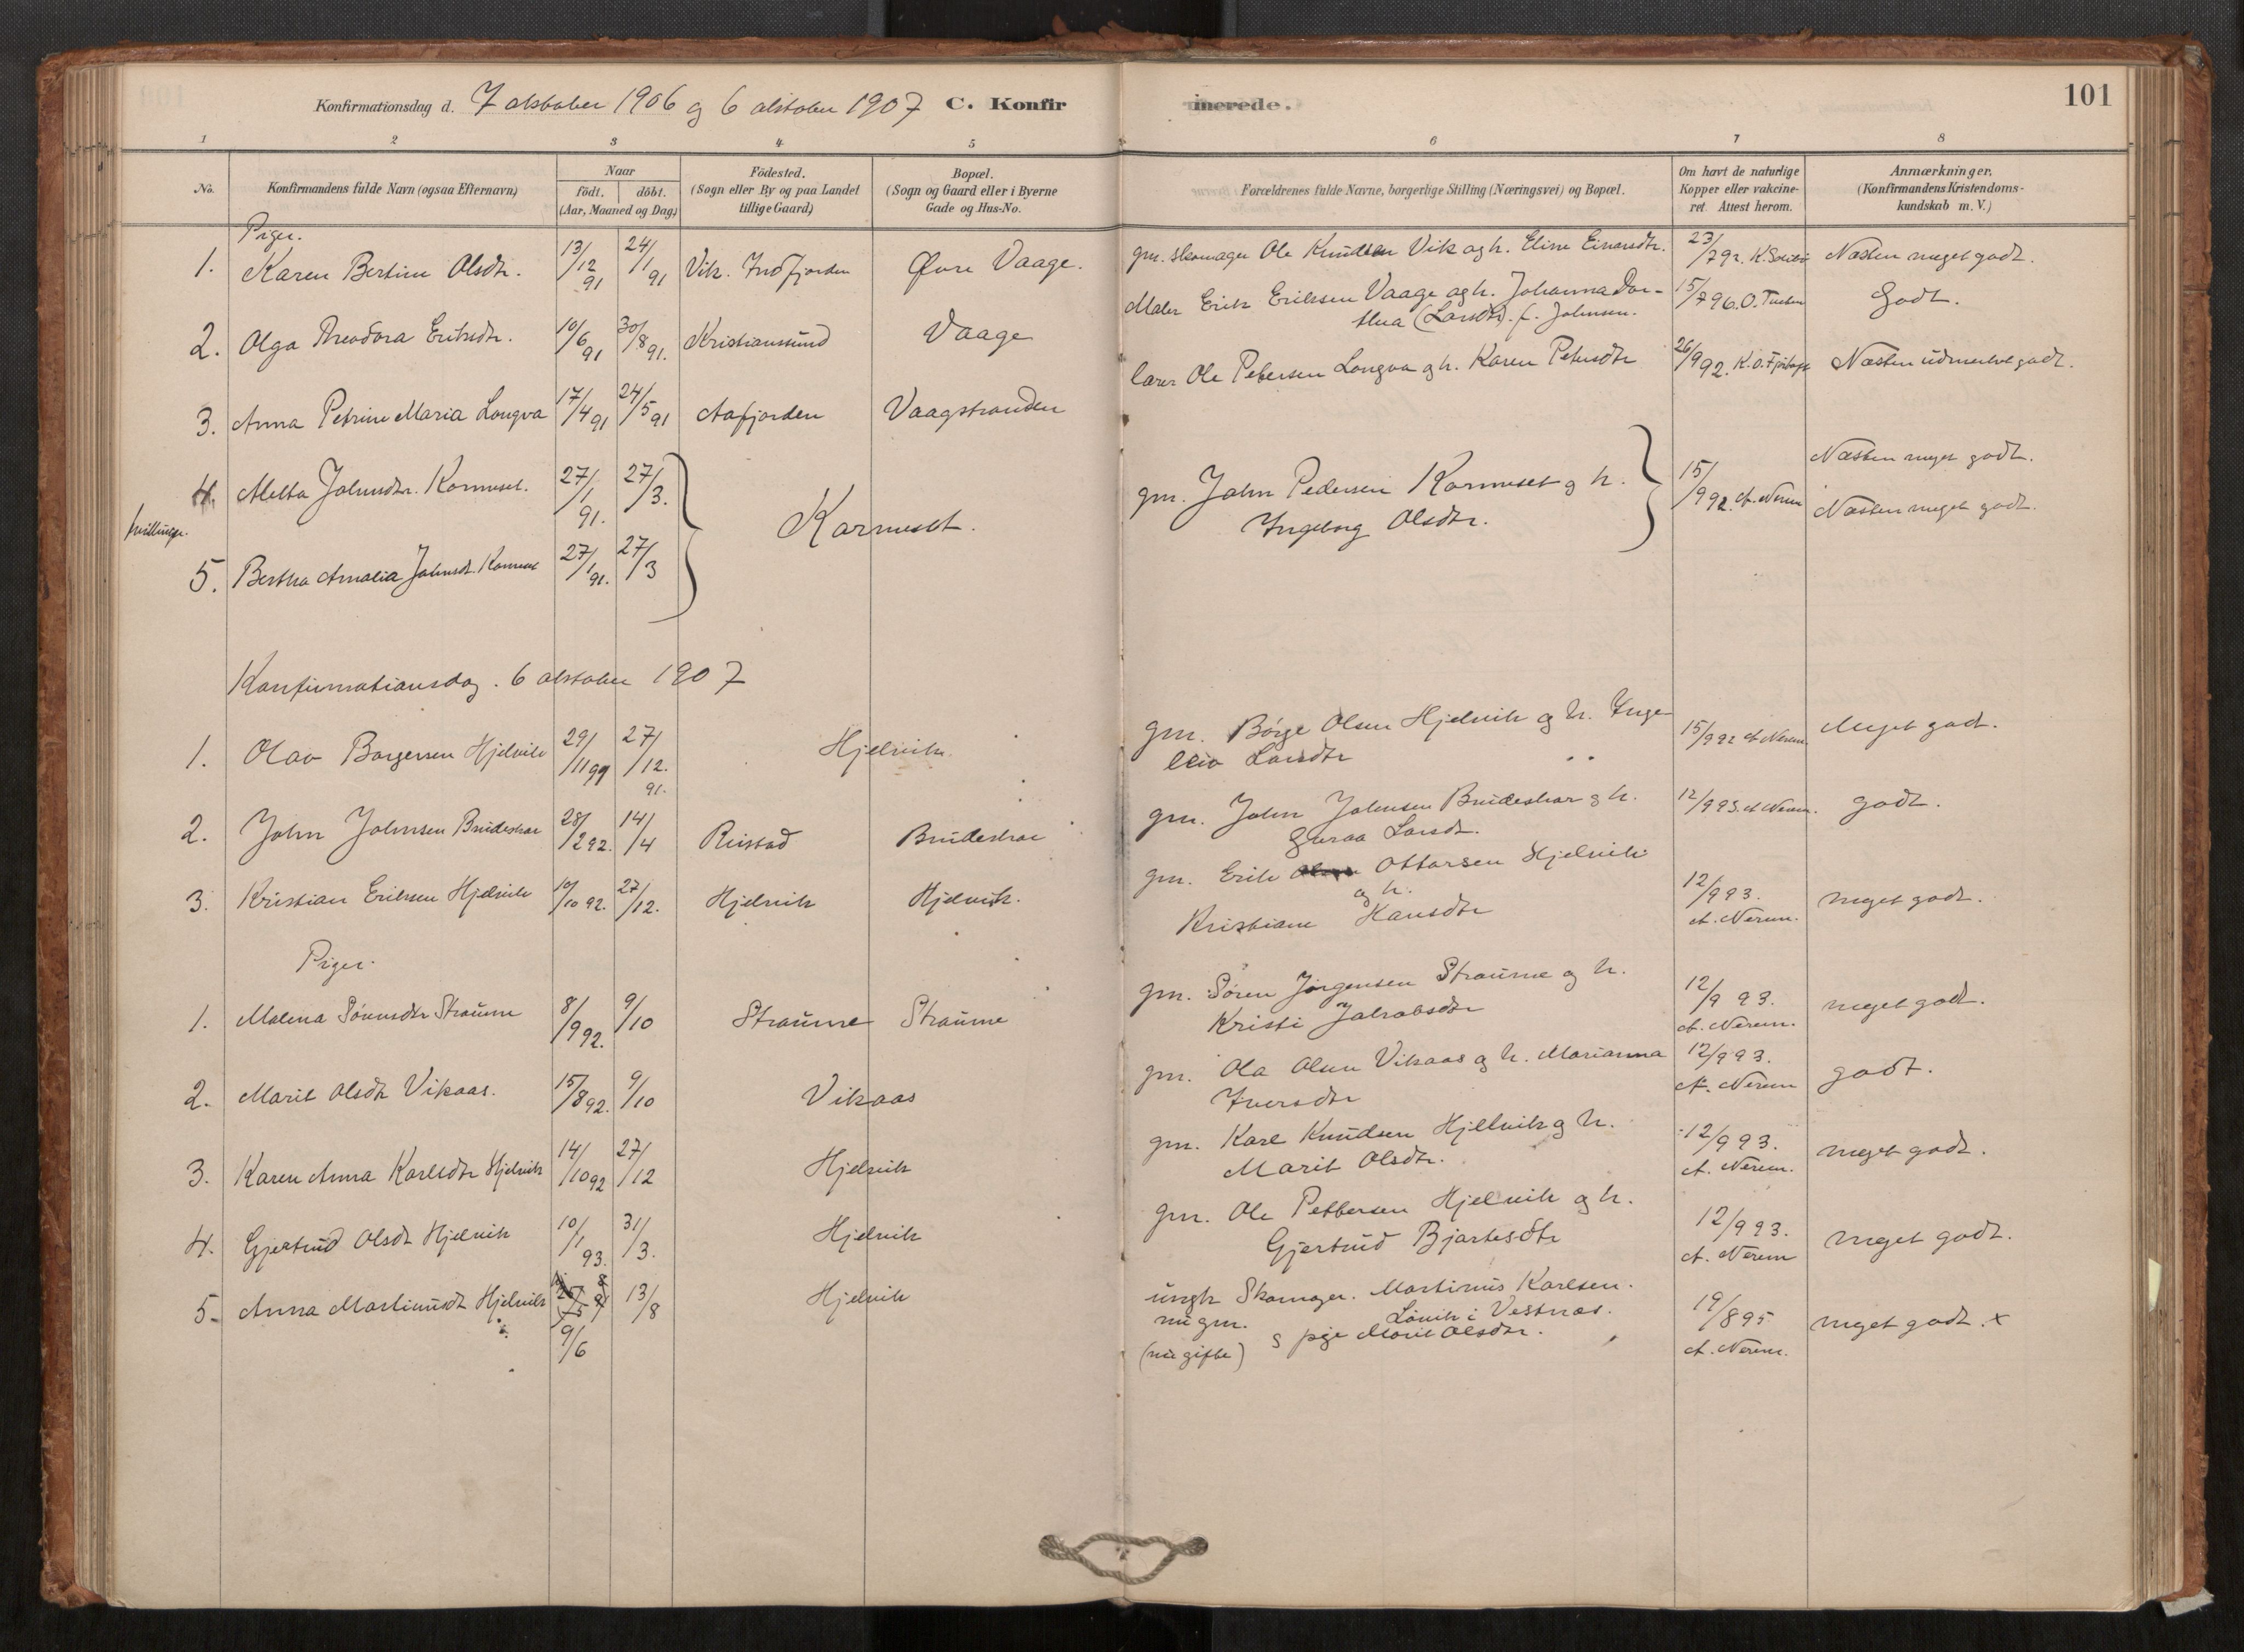 Konfirmationsdag d. 7 oktober 1906 og 6 oktober 1907 C. Konfirmerede. 101
1 2 3 4 5 6 7 8
No. Konfirmandens fulde Navn (ogsaa Efternavn) Naar födt. döbt. (Aar, Maaned og Dag) Födested. (Sogn eller By og paa Landet tillige Gaard) Bopæl. (Sogn og Gaard eller i Byerne Gade og Hus-No. Forældrenes fulde Navne, borgerlige Stilling (Næringsvei) og Bopæl. Om havt de naturlige Kopper eller vakcineret. Attest herom. Anmærkninger, (Konfirmandens Kristendomskundskab m. V.)
Piger.
1. Karen Bertine Olsdtr. 13/12 91 24/1 91 Vik. Indfjorden Øvre Vaage. gm. skomager Ole Knudsen Vik og h. Eline Einarsdtr. 23/7 92. Næsten meget godt.
2. Olga Theodora Eriksdtr. 10/6 91 30/8 91. Kristianssund Vaage Maler Erik Eriksen Vaage og h. Johanna Dorthea (Larsdtr). f. Johnsen. 15/7 96. O. Godt.
3. Anna Petrine Maria Longva 17/4 91 24/5 91 Aafjorden Vaagstranden lærer Ole Petersen Longva og h. Karen Petersdtr 26/9 92. K. O. Næsten udmerket godt.
4. Metta Johnsdtr. Kormeset. 27/1 91. 27/3. Kormeset. gm. John Pedersen Kormeset og h. Ingeborg Olsdtr. 15/9 92. A. Nerem Næsten meget godt.
tvillinger.
5. Bertha Amalia Johnsdt. Kormeset 27/1 91. 27/3 Næsten meget godt.
Konfirmationsdag. 6 oktober 1907
1. Olav Børgersen Hjelvik 29/11 91 27/12. 91. Hjelvik gm. Børge Olsen Hjelvik og h. Ingeleiv Larsdtr 15/9 92 A Nerem. Meget godt.
2. John Johnsen Brudeskar 28/2 92. 14/4 Reistad Brudeskar gm. John Johnsen Brudeskar og h. Guraa Larsdt. 12/9 93. A Nerem. godt.
3. Kristian Eriksen Hjelvik 10/10 92. 27/12. Hjelvik Hjelvik. gm. Erik Ottarsen Hjelvik og h. Kristiane Hansdtr 12/9 93. A. Nerem. meget godt.
Piger.
1. Malena Sörensdtr Straume 8/9 92. 9/10 Straume Straume gm. Sören Jörgensen Straume og h. Kristi Jakobsdtr 12/9 93. A. Nerem. meget godt.
2. Marit Olsdtr Vikaas. 15/8 92. 9/10 Vikaas gm. Ola Olsen Vikaas og h. Marianna Iversdtr 12/9 93. A. Nerem godt.
3. Karen Anna Karlsdtr Hjelvik 14/10 92 27/12 Hjelvik gm. Karl Knudsen Hjelvik og h. Marit Olsdtr. 12/9 93. A. Nerem. meget godt.
4. Gjertrud Olsdt Hjelvik 10/1 93. 31/3. Hjelvik gm. Ole Pettersen Hjelvik og h. Gjertrud Bjartesdtr 12/9 93. A. Nerem meget godt.
5. Anna Martinusdt Hjelvik 9/6 13/8 Hjelvik ungk Skomager. Martinus Karlsen. nu gm. i Vestnes. og pige Marit Olsdtr. (nu gifte) 19/8 95 A. Nerem. meget godt. x